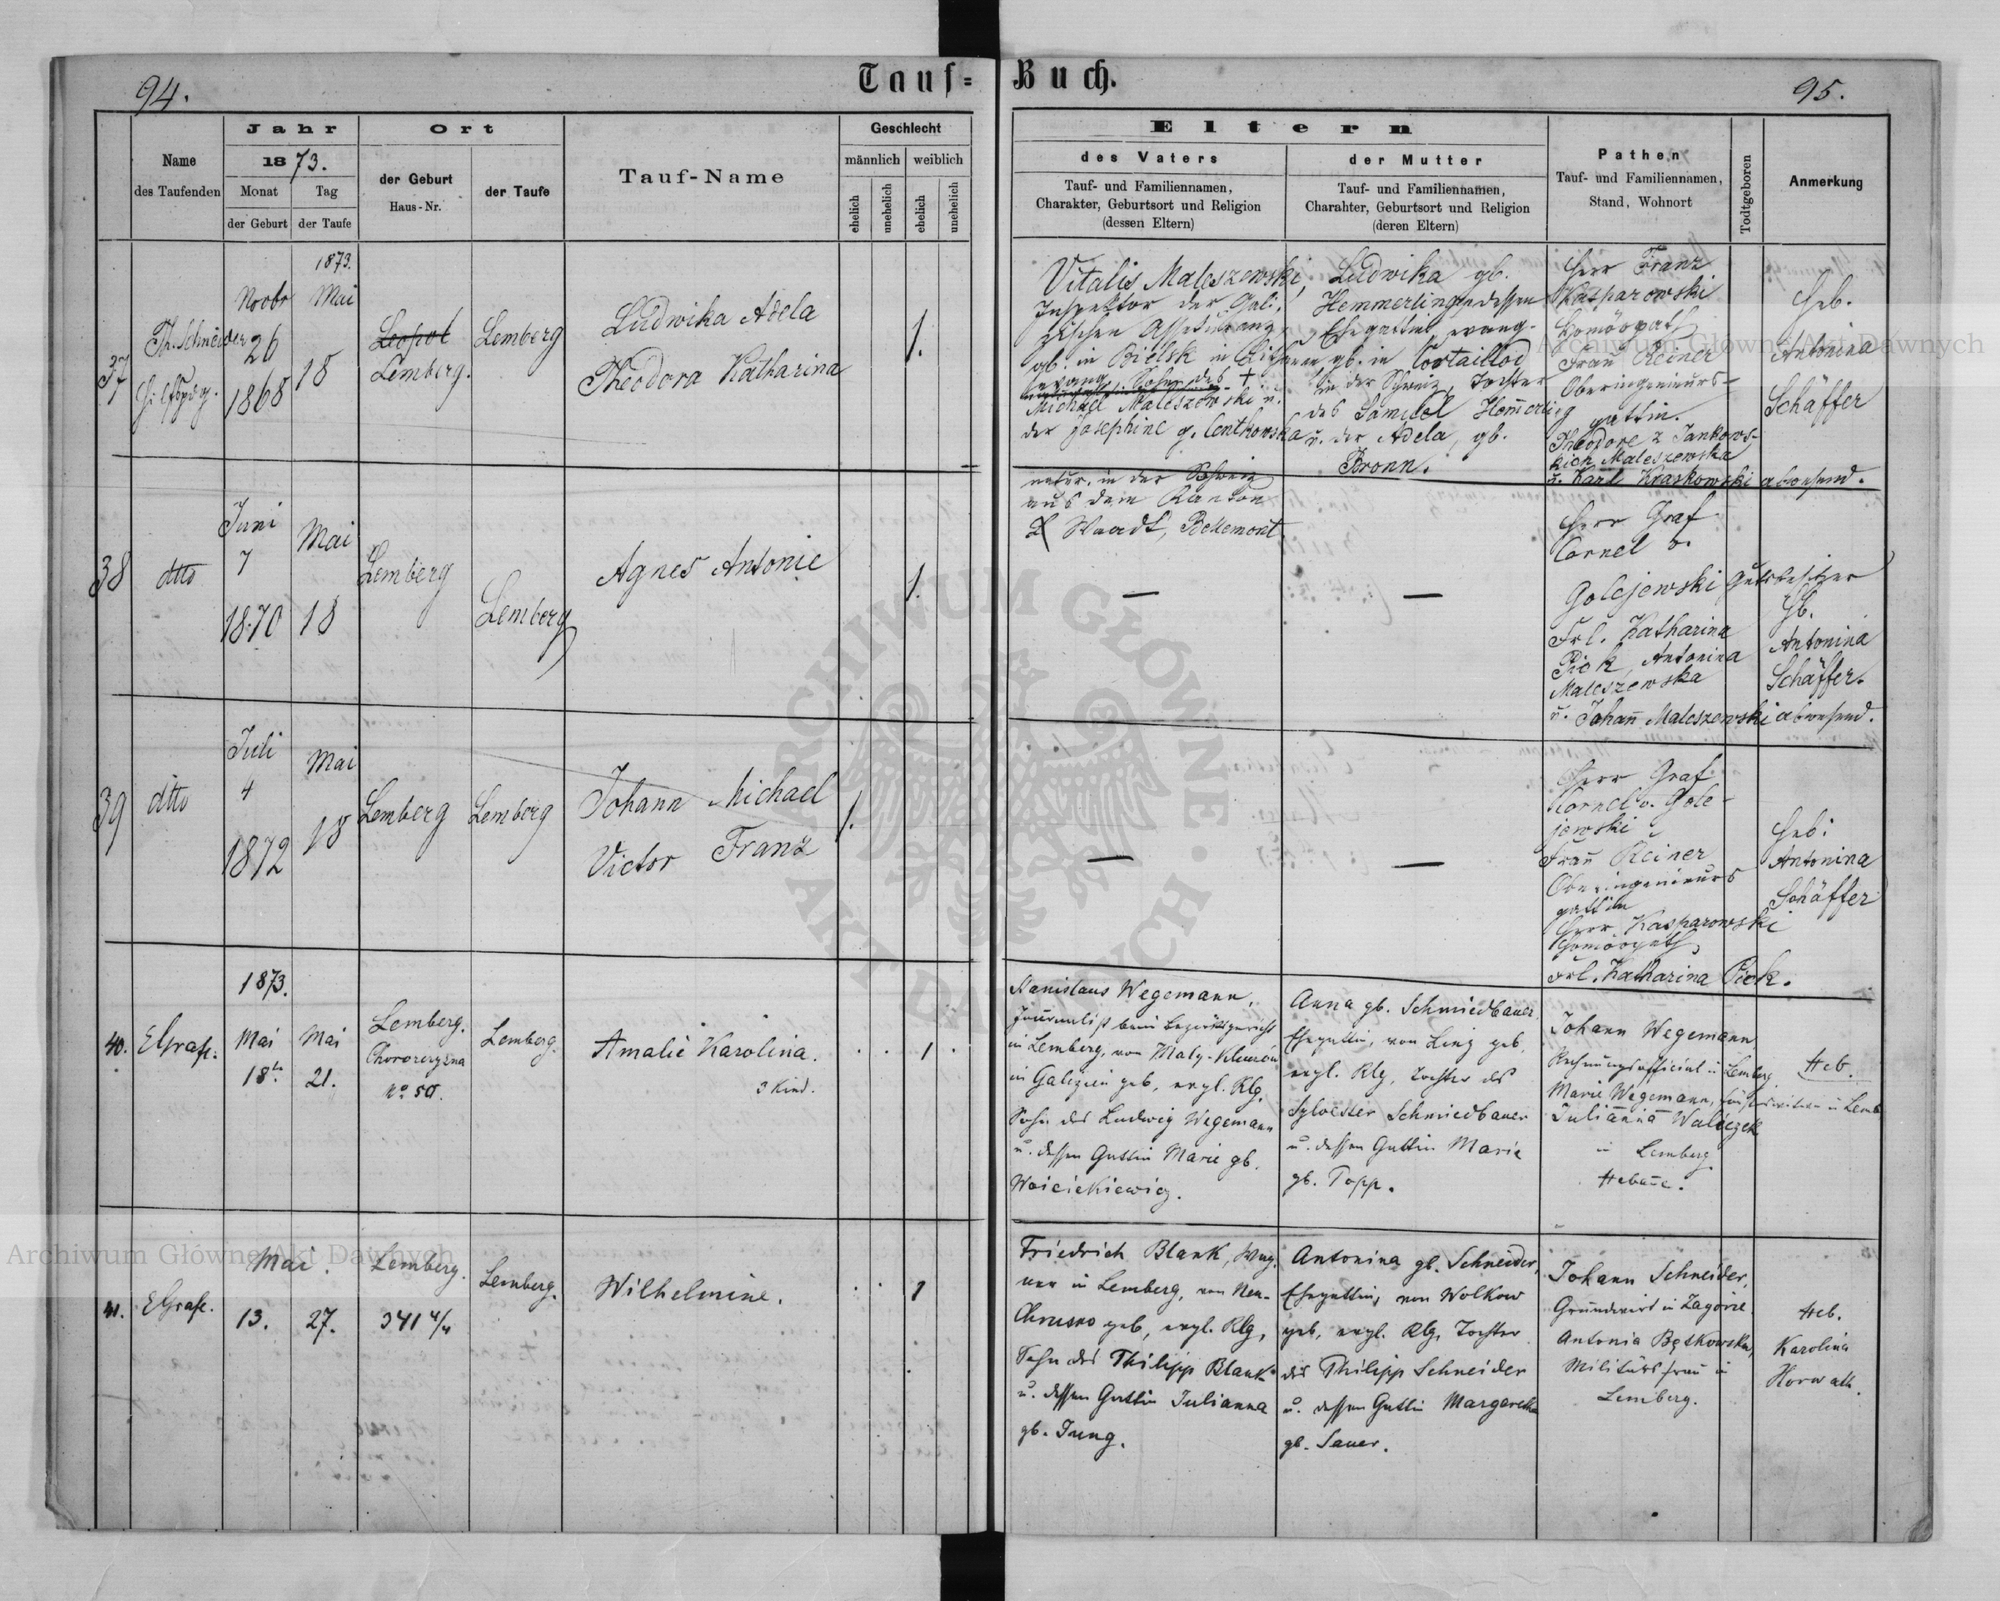 94.
Tauf=
Buch.
95.
Name
des Taufenden
Jahr
1873.
Monat
der Geburt
Tag
der Taufe
Ort
der Geburt
Haus-Nr.
der Taufe
Tauf-Name
Geschlecht
männlich
weiblich
ehelich
unehelich
ehelich
unehelich
Eltern
des Vaters
Tauf- und Familiennamen,
Charakter, Geburtsort und Religion
(dessen Eltern)
der Mutter
Tauf- und Familiennamen,
Charahter, Geburtsort und Religion
(deren Eltern)
Pathen
Tauf- und Familiennamen,
Stand, Wohnort
Todtgeboren
Anmerkung
37
Th. Schneider
Novbr
26
1868
1873.
Mai
18
Leopol
Lemberg.
Lemberg
Ludwika Adela
Theodora Katharina
1.
Vitalis Maleszewski,
Inspektor der Gali-
zischen
gb. in Bielsk in
evang. Sohn des +
Michael Maleszewski u.
der Josephine g. Centkowska
Ludwika gb.
Hemmerling dessen
Ehegattin, evang.
gb. in Cortaillod
in der Schweiz, Tochter
des Samuel Hemerling
u. der Adela, gb.
Bronn.
Herr Franz
Kasparowski
Homöopath
Frau Reiner
Oberingenieurs-
gattin.
Theodore z Jankows-
kich Maleszewska
u. Karl Kraskowski abwesend.
Heb.
Antonina
Schäffer
38
dtto
Juni
7
1870
Mai
18
Lemberg
Lemberg
Agnes Antonie
1.
natur. in der Schweiz
aus dem Kanton
Waadt, Bellemont
—
—
Herr Graf
Cornel v.
Golejewski, Gutsbesitzer
Frl. Katharina
Pick, Antonina
Maleszewska
u. Johann Maleszewski abwesend.
Hb.
Antonina
Schäffer.
39
dtto
Juli
4
1872
Mai
18
Lemberg
Lemberg
Johann Michael
Victor Franz
1.
—
—
Herr Graf
Kornel v. Gole-
jewski
Frau Reiner
Oberingenieurs
gattin
Herr Kasparowski
Homöopath,
Frl. Katharina Pick.
Heb:
Antonina
Schäffer
40.
EGrafe.
1873.
Mai
18t
Mai
21.
Lemberg.
Chorozczyzna
No 50.
Lemberg.
Amalie Karolina.
3 Kind.
1
Stanislaus Wegemann,
Journalist beim Bezirksgericht
in Lemberg, von
in Galizien geb, evgl. Rlg,
Sohn des Ludwig Wegemann
u. dessen Gattin Marie gb.
Woicickiewicz.
Anna gb. Schmiedbauer,
Ehegattin, von Linz geb,
evgl. Rlg, Tochter des
Sylvester Schmiedbauer
u. dessen Gattin Marie
gb. Topp.
Johann Wegemann
Rechnungsofficial in Lemberg,
Marie Wegemann, in Lemb
Julianna Waliczek
in Lemberg
Hebame.
Heb.
41.
EGrafe.
Mai.
13.
27.
Lemberg.
341 4/4
Lemberg.
Wilhelmine.
1
Friedrich Blank, Wag-
ner in Lemberg, von Neu-
Chrusno geb, evgl. Rlg,
Sohn des Philipp Blank
u. dessen Gattin Julianna
gb. Jung.
Antonina gb. Schneider,
Ehegattin, von Wolkow
geb, evgl. Rlg, Tochter
des Philipp Schneider
u. dessen Gattin Margaretha
gb. Sauer.
Johann Schneider,
Grundwirt in Zagórze.
Antonia Bętkowska,
Militärsfrau in
Lemberg.
Heb.
Karolina
Horwath.
Archiwum Główne Akt Dawnych
Archiwum Główne Akt Dawnych
ARCHIWUM GŁÓWNE · AKT DAWNYCH ·